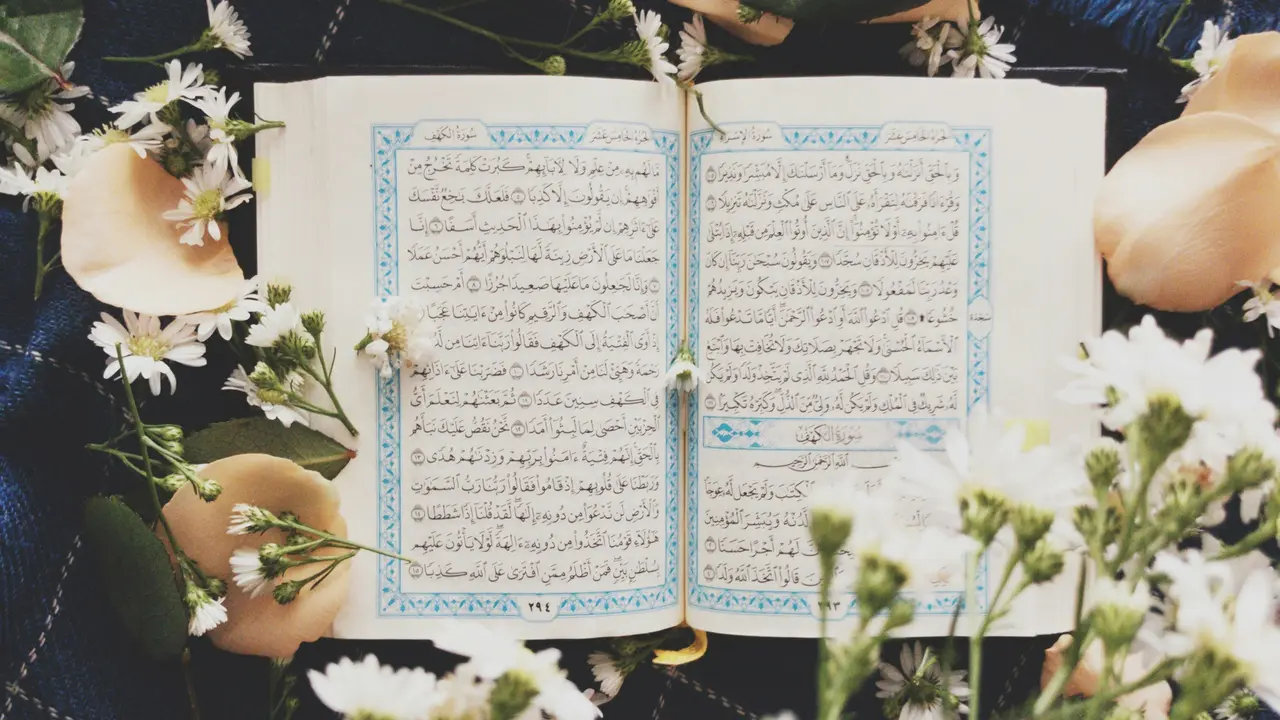 الجزء الخامس عشر
سورة الإسراء
وَبِالْحَقِّ أَنزَلْنَاهُ وَبِالْحَقِّ نَزَلَ وَمَا أَرْسَلْنَاكَ إِلَّا مُبَشِّرًا وَنَذِيرًا ١٠٥
وَقُرْءَانًا فَرَقْنَاهُ لِتَقْرَأَهُ عَلَى النَّاسِ عَلَىٰ مُكْثٍ وَنَزَّلْنَاهُ تَنزِيلًا ١٠٦
قُلْ ءَامِنُوا بِهِ أَوْ لَا تُؤْمِنُوا إِنَّ الَّذِينَ أُوتُوا الْعِلْمَ مِن قَبْلِهِ إِذَا يُتْلَىٰ
عَلَيْهِمْ يَخِرُّونَ لِلْأَذْقَانِ سُجَّدًا ١٠٧ وَيَقُولُونَ سُبْحَٰنَ رَبِّنَا إِن كَانَ
وَعْدُ رَبِّنَا لَمَفْعُولًا ١٠٨ وَيَخِرُّونَ لِلْأَذْقَانِ يَبْكُونَ وَيَزِيدُهُمْ
خُشُوعًا ۩ ١٠٩ قُلِ ادْعُوا اللَّهَ أَوِ ادْعُوا الرَّحْمَٰنَ أَيًّا مَّا تَدْعُوا فَلَهُ
سجدة
الْأَسْمَاءُ الْحُسْنَىٰ وَلَا تَجْهَرْ بِصَلَاتِكَ وَلَا تُخَافِتْ بِهَا وَابْتَغِ
بَيْنَ ذَٰلِكَ سَبِيلًا ١١٠ وَقُلِ الْحَمْدُ لِلَّهِ الَّذِي لَمْ يَتَّخِذْ وَلَدًا وَلَمْ يَكُن
لَّهُ شَرِيكٌ فِي الْمُلْكِ وَلَمْ يَكُن لَّهُ وَلِيٌّ مِّنَ الذُّلِّ وَكَبِّرْهُ تَكْبِيرًا ١١١
سورة الكهف
اللَّهِ الرَّحْمَٰنِ الرَّحِيمِ
الْكِتَٰبَ وَلَمْ يَجْعَل لَّهُ عِوَجًا
لَّدُنْهُ وَيُبَشِّرَ الْمُؤْمِنِينَ
لَهُمْ أَجْرًا حَسَنًا ٢
قَالُوا اتَّخَذَ اللَّهُ وَلَدًا ٤
٢٩٣
الجزء الخامس عشر
سورة الكهف
مَّا لَهُم بِهِ مِنْ عِلْمٍ وَلَا لِءَابَائِهِمْ كَبُرَتْ كَلِمَةً تَخْرُجُ مِنْ
أَفْوَاهِهِمْ إِن يَقُولُونَ إِلَّا كَذِبًا ٥ فَلَعَلَّكَ بَاخِعٌ نَّفْسَكَ
عَلَىٰ ءَاثَارِهِمْ إِن لَّمْ يُؤْمِنُوا بِهَٰذَا الْحَدِيثِ أَسَفًا ٦ إِنَّا
جَعَلْنَا مَا عَلَى الْأَرْضِ زِينَةً لَّهَا لِنَبْلُوَهُمْ أَيُّهُمْ أَحْسَنُ عَمَلًا
٧ وَإِنَّا لَجَاعِلُونَ مَا عَلَيْهَا صَعِيدًا جُرُزًا ٨ أَمْ حَسِبْتَ
أَنَّ أَصْحَابَ الْكَهْفِ وَالرَّقِيمِ كَانُوا مِنْ ءَايَاتِنَا عَجَبًا
إِذْ أَوَى الْفِتْيَةُ إِلَى الْكَهْفِ فَقَالُوا رَبَّنَا ءَاتِنَا مِن لَّدُنكَ
رَحْمَةً وَهَيِّئْ لَنَا مِنْ أَمْرِنَا رَشَدًا ١٠ فَضَرَبْنَا عَلَىٰ ءَاذَانِهِمْ
فِي الْكَهْفِ سِنِينَ عَدَدًا ١١ ثُمَّ بَعَثْنَاهُمْ لِنَعْلَمَ أَيُّ
الْحِزْبَيْنِ أَحْصَىٰ لِمَا لَبِثُوا أَمَدًا ١٢ نَّحْنُ نَقُصُّ عَلَيْكَ نَبَأَهُم
بِالْحَقِّ إِنَّهُمْ فِتْيَةٌ ءَامَنُوا بِرَبِّهِمْ وَزِدْنَاهُمْ هُدًى ١٣
وَرَبَطْنَا عَلَىٰ قُلُوبِهِمْ إِذْ قَامُوا فَقَالُوا رَبُّنَا رَبُّ السَّمَٰوَٰتِ
وَالْأَرْضِ لَن نَّدْعُوَا مِن دُونِهِ إِلَٰهًا لَّقَدْ قُلْنَا إِذًا شَطَطًا ١٤
هَٰؤُلَاءِ قَوْمُنَا اتَّخَذُوا مِن دُونِهِ ءَالِهَةً لَّوْلَا يَأْتُونَ عَلَيْهِم
بِسُلْطَٰنٍ بَيِّنٍ فَمَنْ أَظْلَمُ مِمَّنِ افْتَرَىٰ عَلَى اللَّهِ كَذِبًا ١٥
٢٩٤